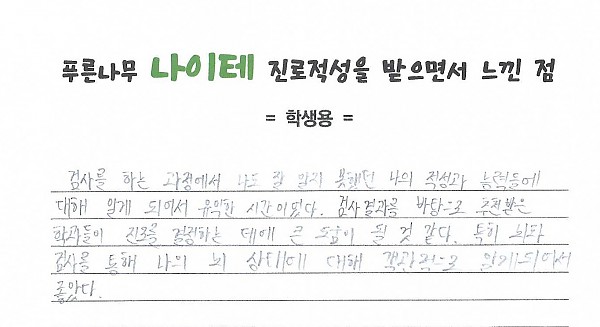 푸른나무 나이테 진로적성을 받으면서 느낀 점
= 학생용 =
검사를 하는 과정에서 나도 잘 알지 못했던 나의 적성과 능력들에
대해 알게 되어서 유익한 시간이었다. 검사결과를 바탕으로 추천받은
학과들이 진로를 결정하는 데에 큰 도움이 될 것 같다. 특히 뇌파
검사를 통해 나의 뇌 상태에 대해 객관적으로 알게되어서
좋았다.